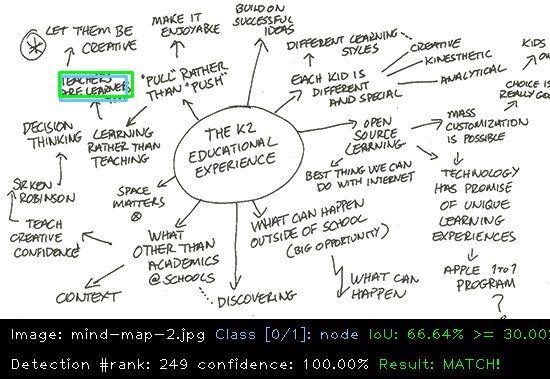 LET THEM BE
CREATIVE
MAKE IT
ENJOYABLE
BUILD ON
SUCCESSFUL
IDEAS
DIFFERENT LEARNING
STYLES
CREATIVE
KINESTHETIC
ANALYTICAL
KIDS
TEACHERS
ARE LEARNERS
"PULL" RATHER
THAN "PUSH"
EACH KID IS
DIFFERENT
AND SPECIAL
CHOICE IS
DECISION
THINKING
LEARNING
RATHER THAN
TEACHING
THE K2
EDUCATIONAL
EXPERIENCE
OPEN
SOURCE
LEARNING
MASS
CUSTOMIZATION
IS POSSIBLE
BEST THING WE CAN
DO WITH INTERNET
SIR KEN
ROBINSON
SPACE
MATTERS
TECHNOLOGY
HAS PROMISE
OF UNIQUE
LEARNING
EXPERIENCES
TEACH
CREATIVE
CONFIDENCE
WHAT
OTHER THAN
ACADEMICS
@ SCHOOLS
WHAT CAN HAPPEN
OUTSIDE OF SCHOOL
(BIG OPPORTUNITY)
CONTEXT
DISCOVERING
WHAT CAN
HAPPEN
APPLE 1 TO 1
PROGRAM
?
Image: mind-map-2.jpg Class [0/1]: node IoU: 66.64% >= 30.00
Detection #rank: 249 confidence: 100.00% Result: MATCH!